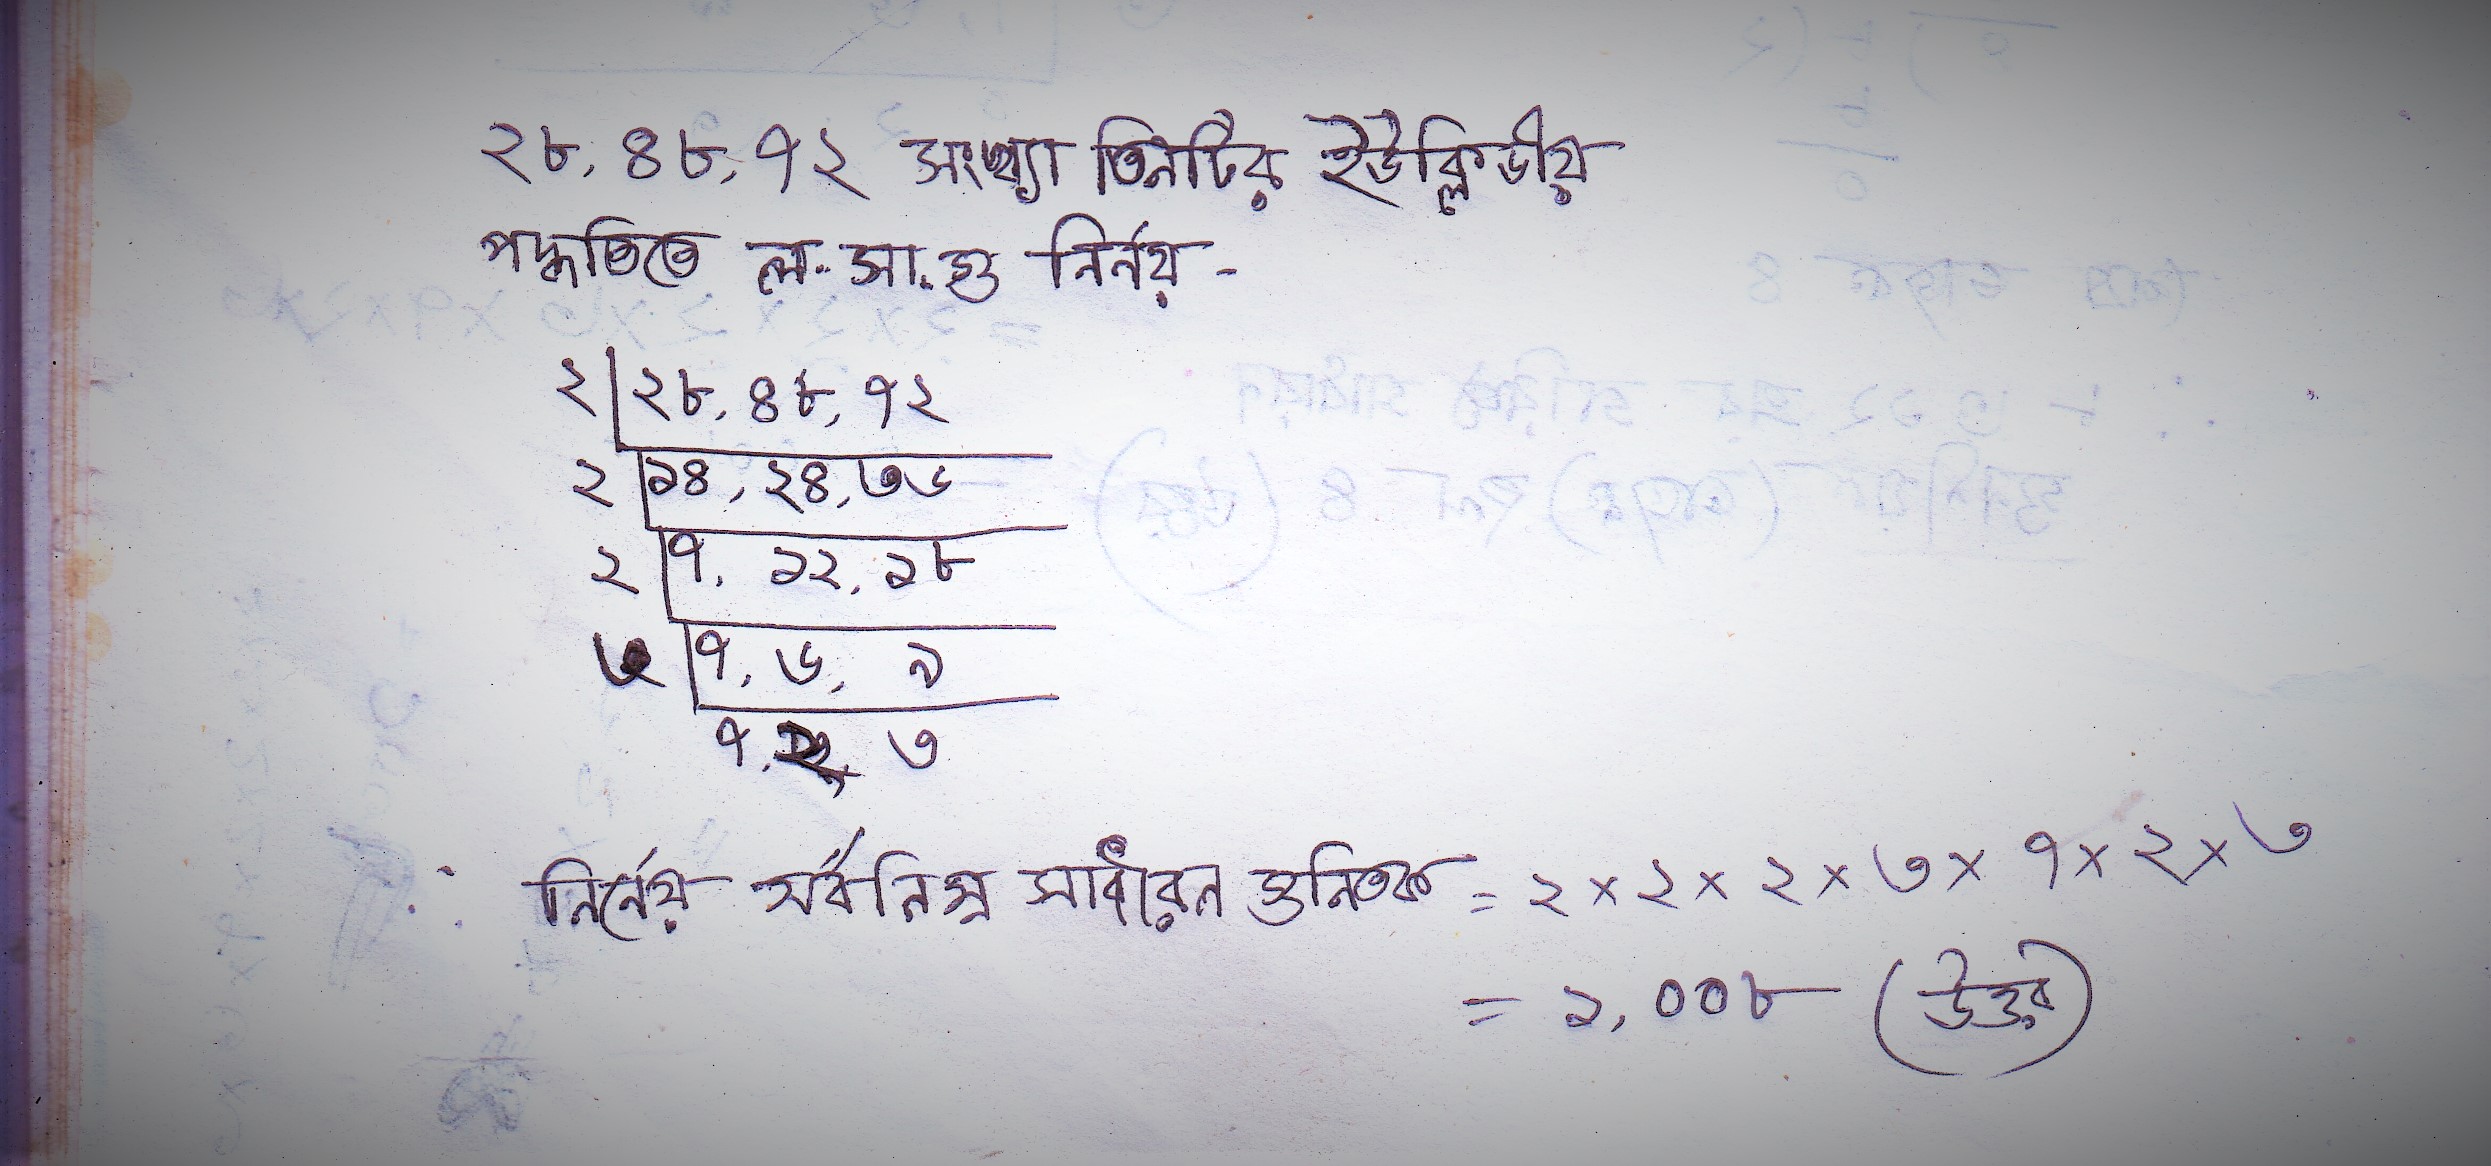 ২৮, ৪৮, ৭২ সংখ্যা তিনটির ইউক্লিডীয়
পদ্ধতিতে ল. সা. গু নির্নয় -
২ | ২৮, ৪৮, ৭২
২ | ১৪, ২৪, ৩৬
২ | ৭, ১২, ১৮
৩ | ৭, ৬, ৯
৭, ২, ৩
∴ নির্নেয় সর্বনিম্ন সাধারন গুনিতক = ২ × ২ × ২ × ৩ × ৭ × ২ × ৩
= ১,০০৮ (উত্তর)